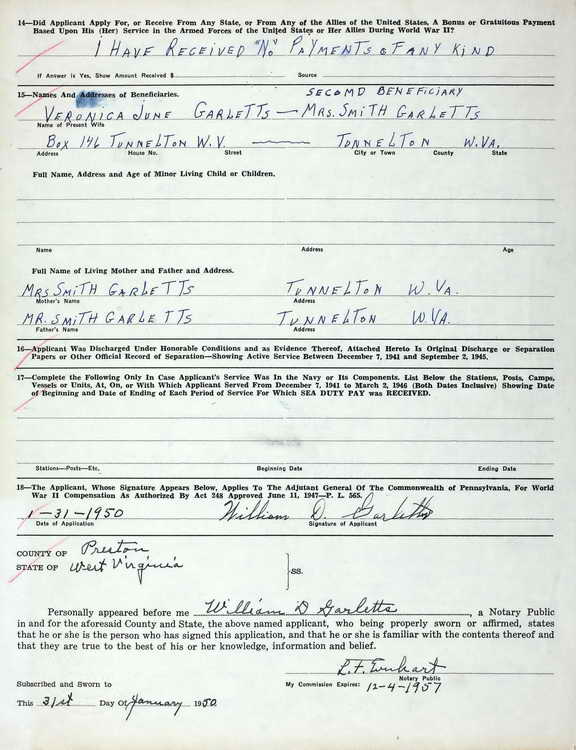 14—Did Applicant Apply For, or Receive From Any State, or From Any of the Allies of the United States, A Bonus or Gratuitous Payment
Based Upon His (Her) Service in the Armed Forces of the United States or Her Allies During World War II?
I HAVE RECEIVED "No" PAYMENTS OF ANY KIND
If Answer is Yes, Show Amount Received $ Source
15—Names And Addresses of Beneficiaries. SECOMD BENEFICIARY
VERONICA JUNE GARLETTS — MRS. SMITH GARLETTS
Name of Present Wife
Box 146 TUNNELTON W.V. — TUNNELTON W.VA.
Address House No. Street City or Town County State
Full Name, Address and Age of Minor Living Child or Children.
Name Address Age
Full Name of Living Mother and Father and Address.
MRS SMITH GARLETTS TUNNELTON W.VA.
Mother's Name Address
MR. SMITH GARLETTS TUNNELTON W.VA.
Father's Name Address
16—Applicant Was Discharged Under Honorable Conditions and as Evidence Thereof, Attached Hereto Is Original Discharge or Separation
Papers or Other Official Record of Separation—Showing Active Service Between December 7, 1941 and September 2, 1945.
17—Complete the Following Only In Case Applicant's Service Was In the Navy or Its Components. List Below the Stations, Posts, Camps,
Vessels or Units, At, On, or With Which Applicant Served From December 7, 1941 to March 2, 1946 (Both Dates Inclusive) Showing Date
of Beginning and Date of Ending of Each Period of Service For Which SEA DUTY PAY was RECEIVED.
Stations—Posts—Etc. Beginning Date Ending Date
18—The Applicant, Whose Signature Appears Below, Applies To The Adjutant General Of The Commonwealth of Pennsylvania, For World
War II Compensation As Authorized By Act 248 Approved June 11, 1947—P. L. 565.
1-31-1950 William D. Garletts
Date of Application Signature of Applicant
COUNTY OF Preston
STATE OF West Virginia
}ss.
Personally appeared before me William D Garletts, a Notary Public
in and for the aforesaid County and State, the above named applicant, who being properly sworn or affirmed, states
that he or she is the person who has signed this application, and that he or she is familiar with the contents thereof and
that they are true to the best of his or her knowledge, information and belief.
L. F. Everhart
Notary Public
Subscribed and Sworn to My Commission Expires: 12-4-1957
This 31st Day Of January 1950.